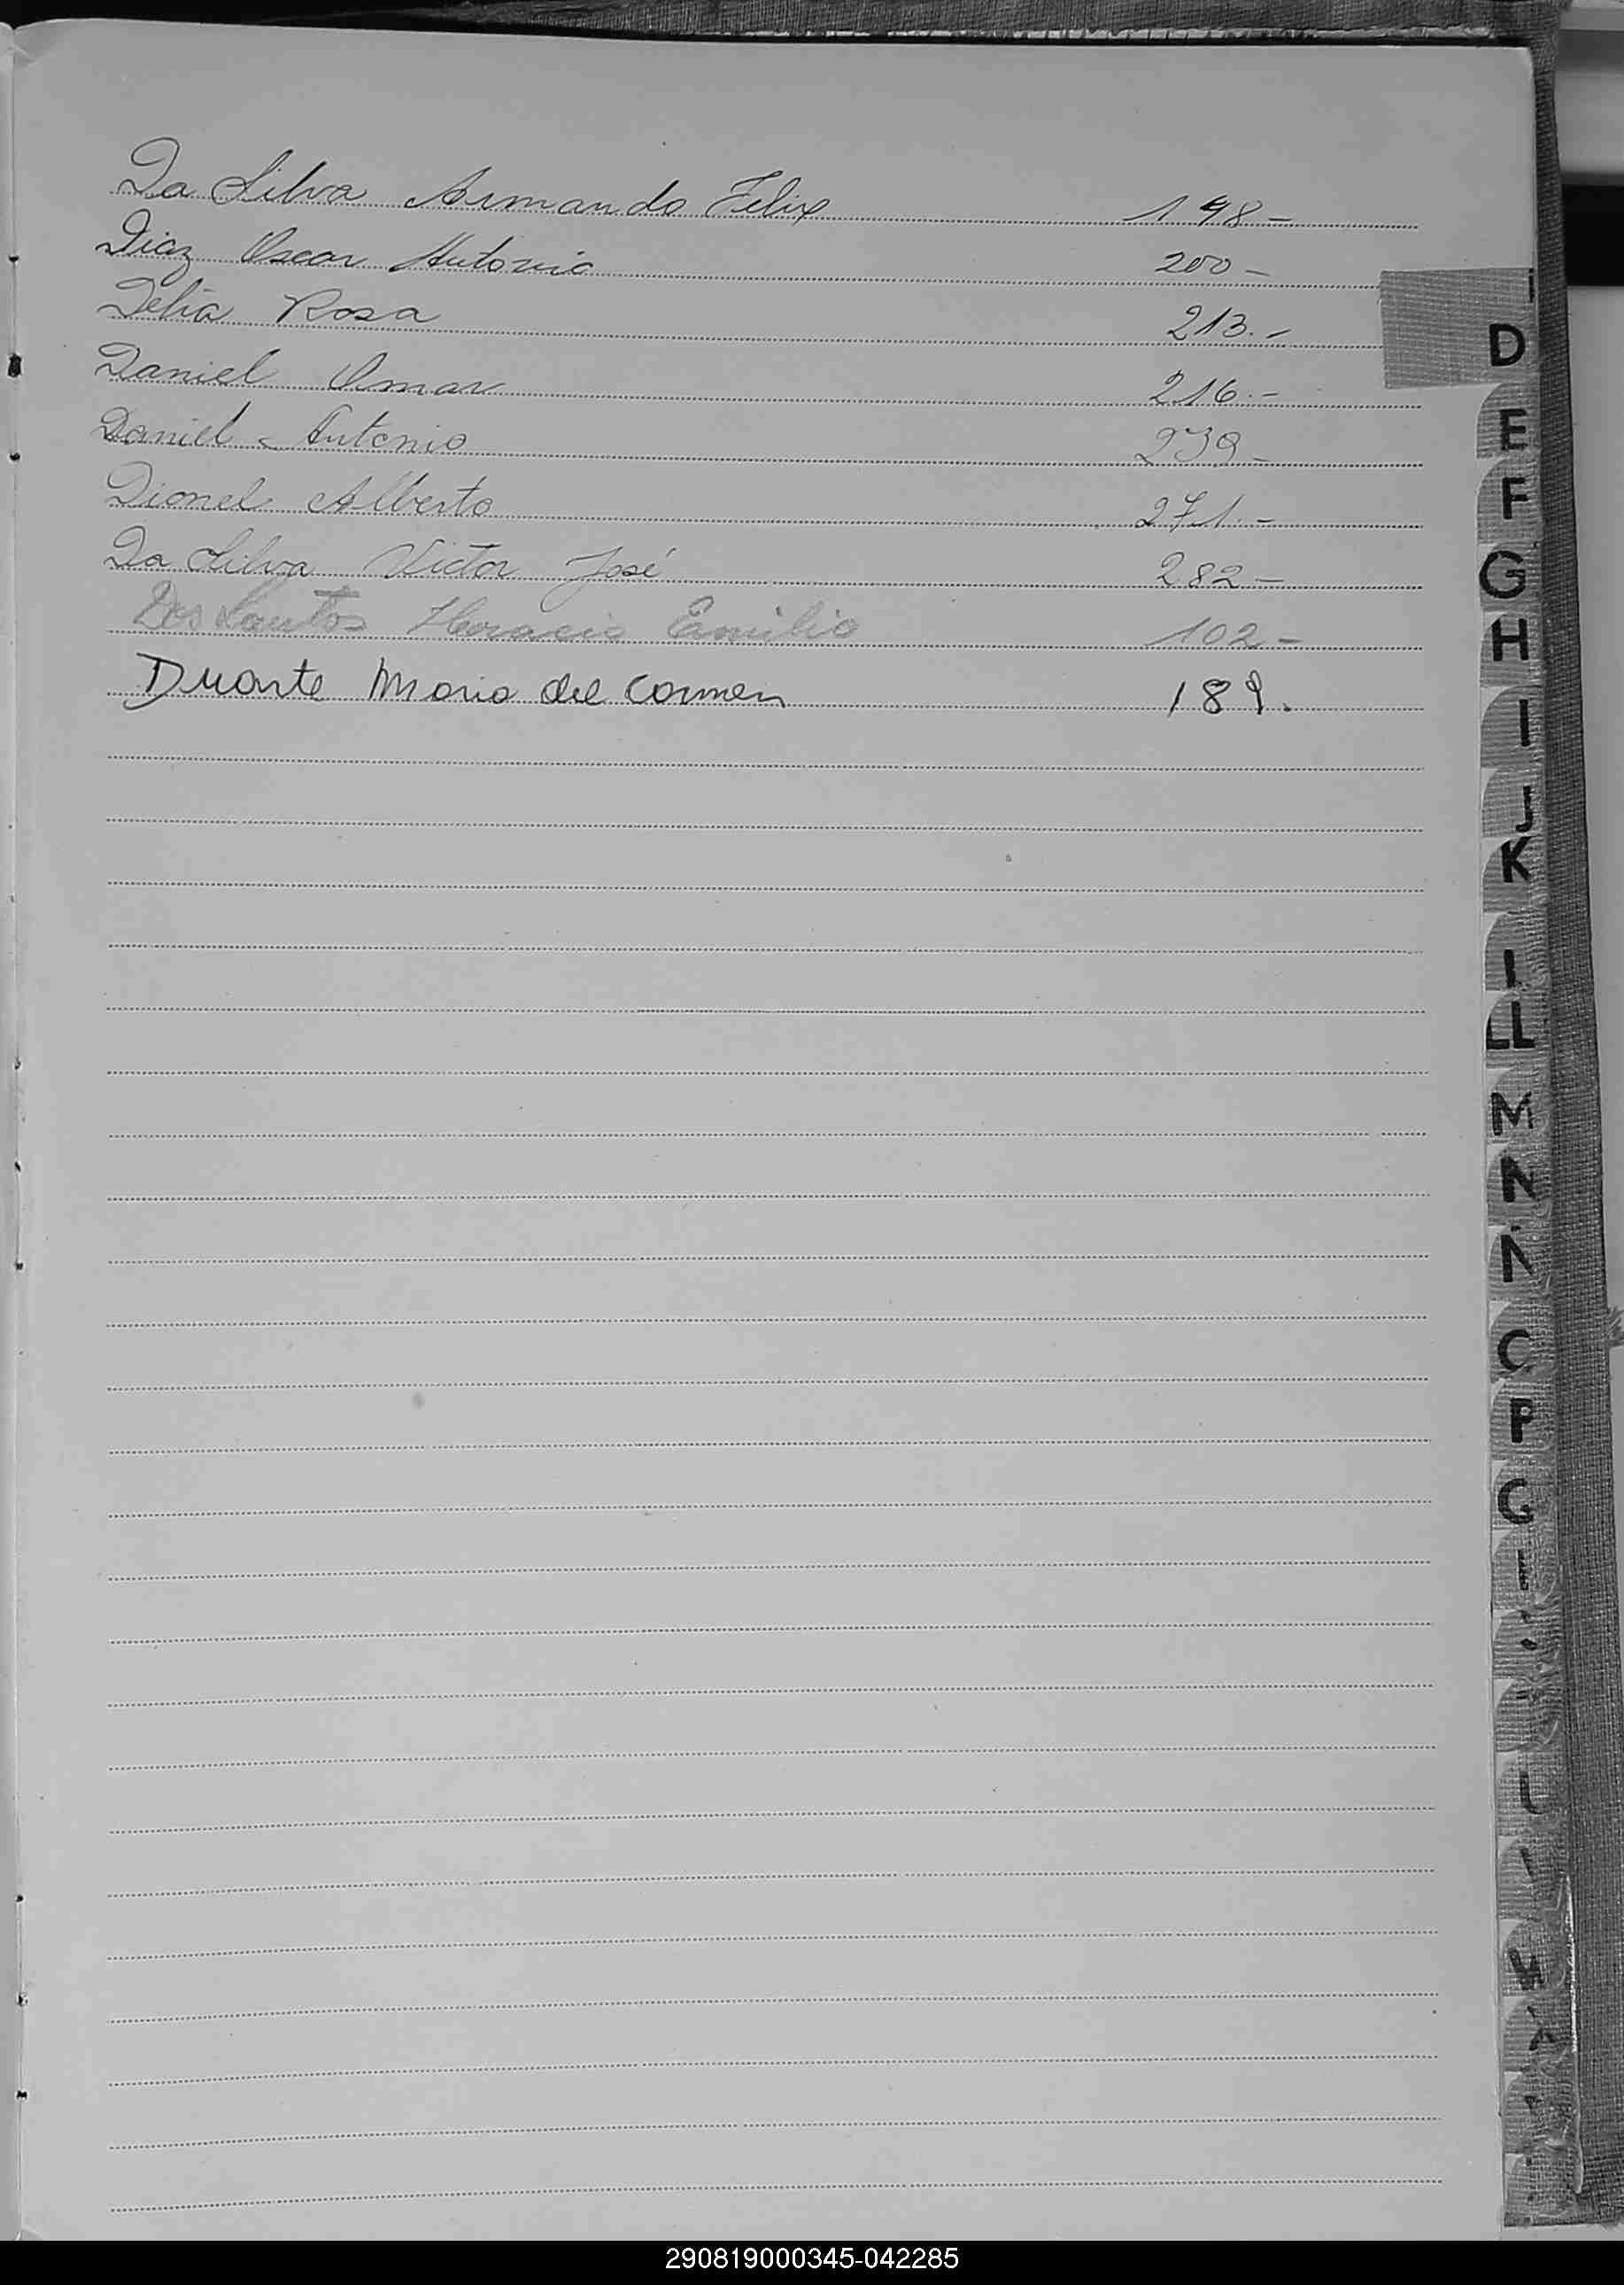 Da Silva Armando Felix 198 -
Diaz Oscar Antonio 200 -
Delia Rosa 213. -
Daniel Omar 216. -
Daniel - Antonio 239 -
Dionel Alberto 271. -
Da Silva Victor José 282 -
Dos Santos Horacio Emilio 102 -
Duarte Maria del Carmen 189.
D
E
F
G
H
I
J
K
L
LL
M
N
Ñ
O
P
290819000345-042285